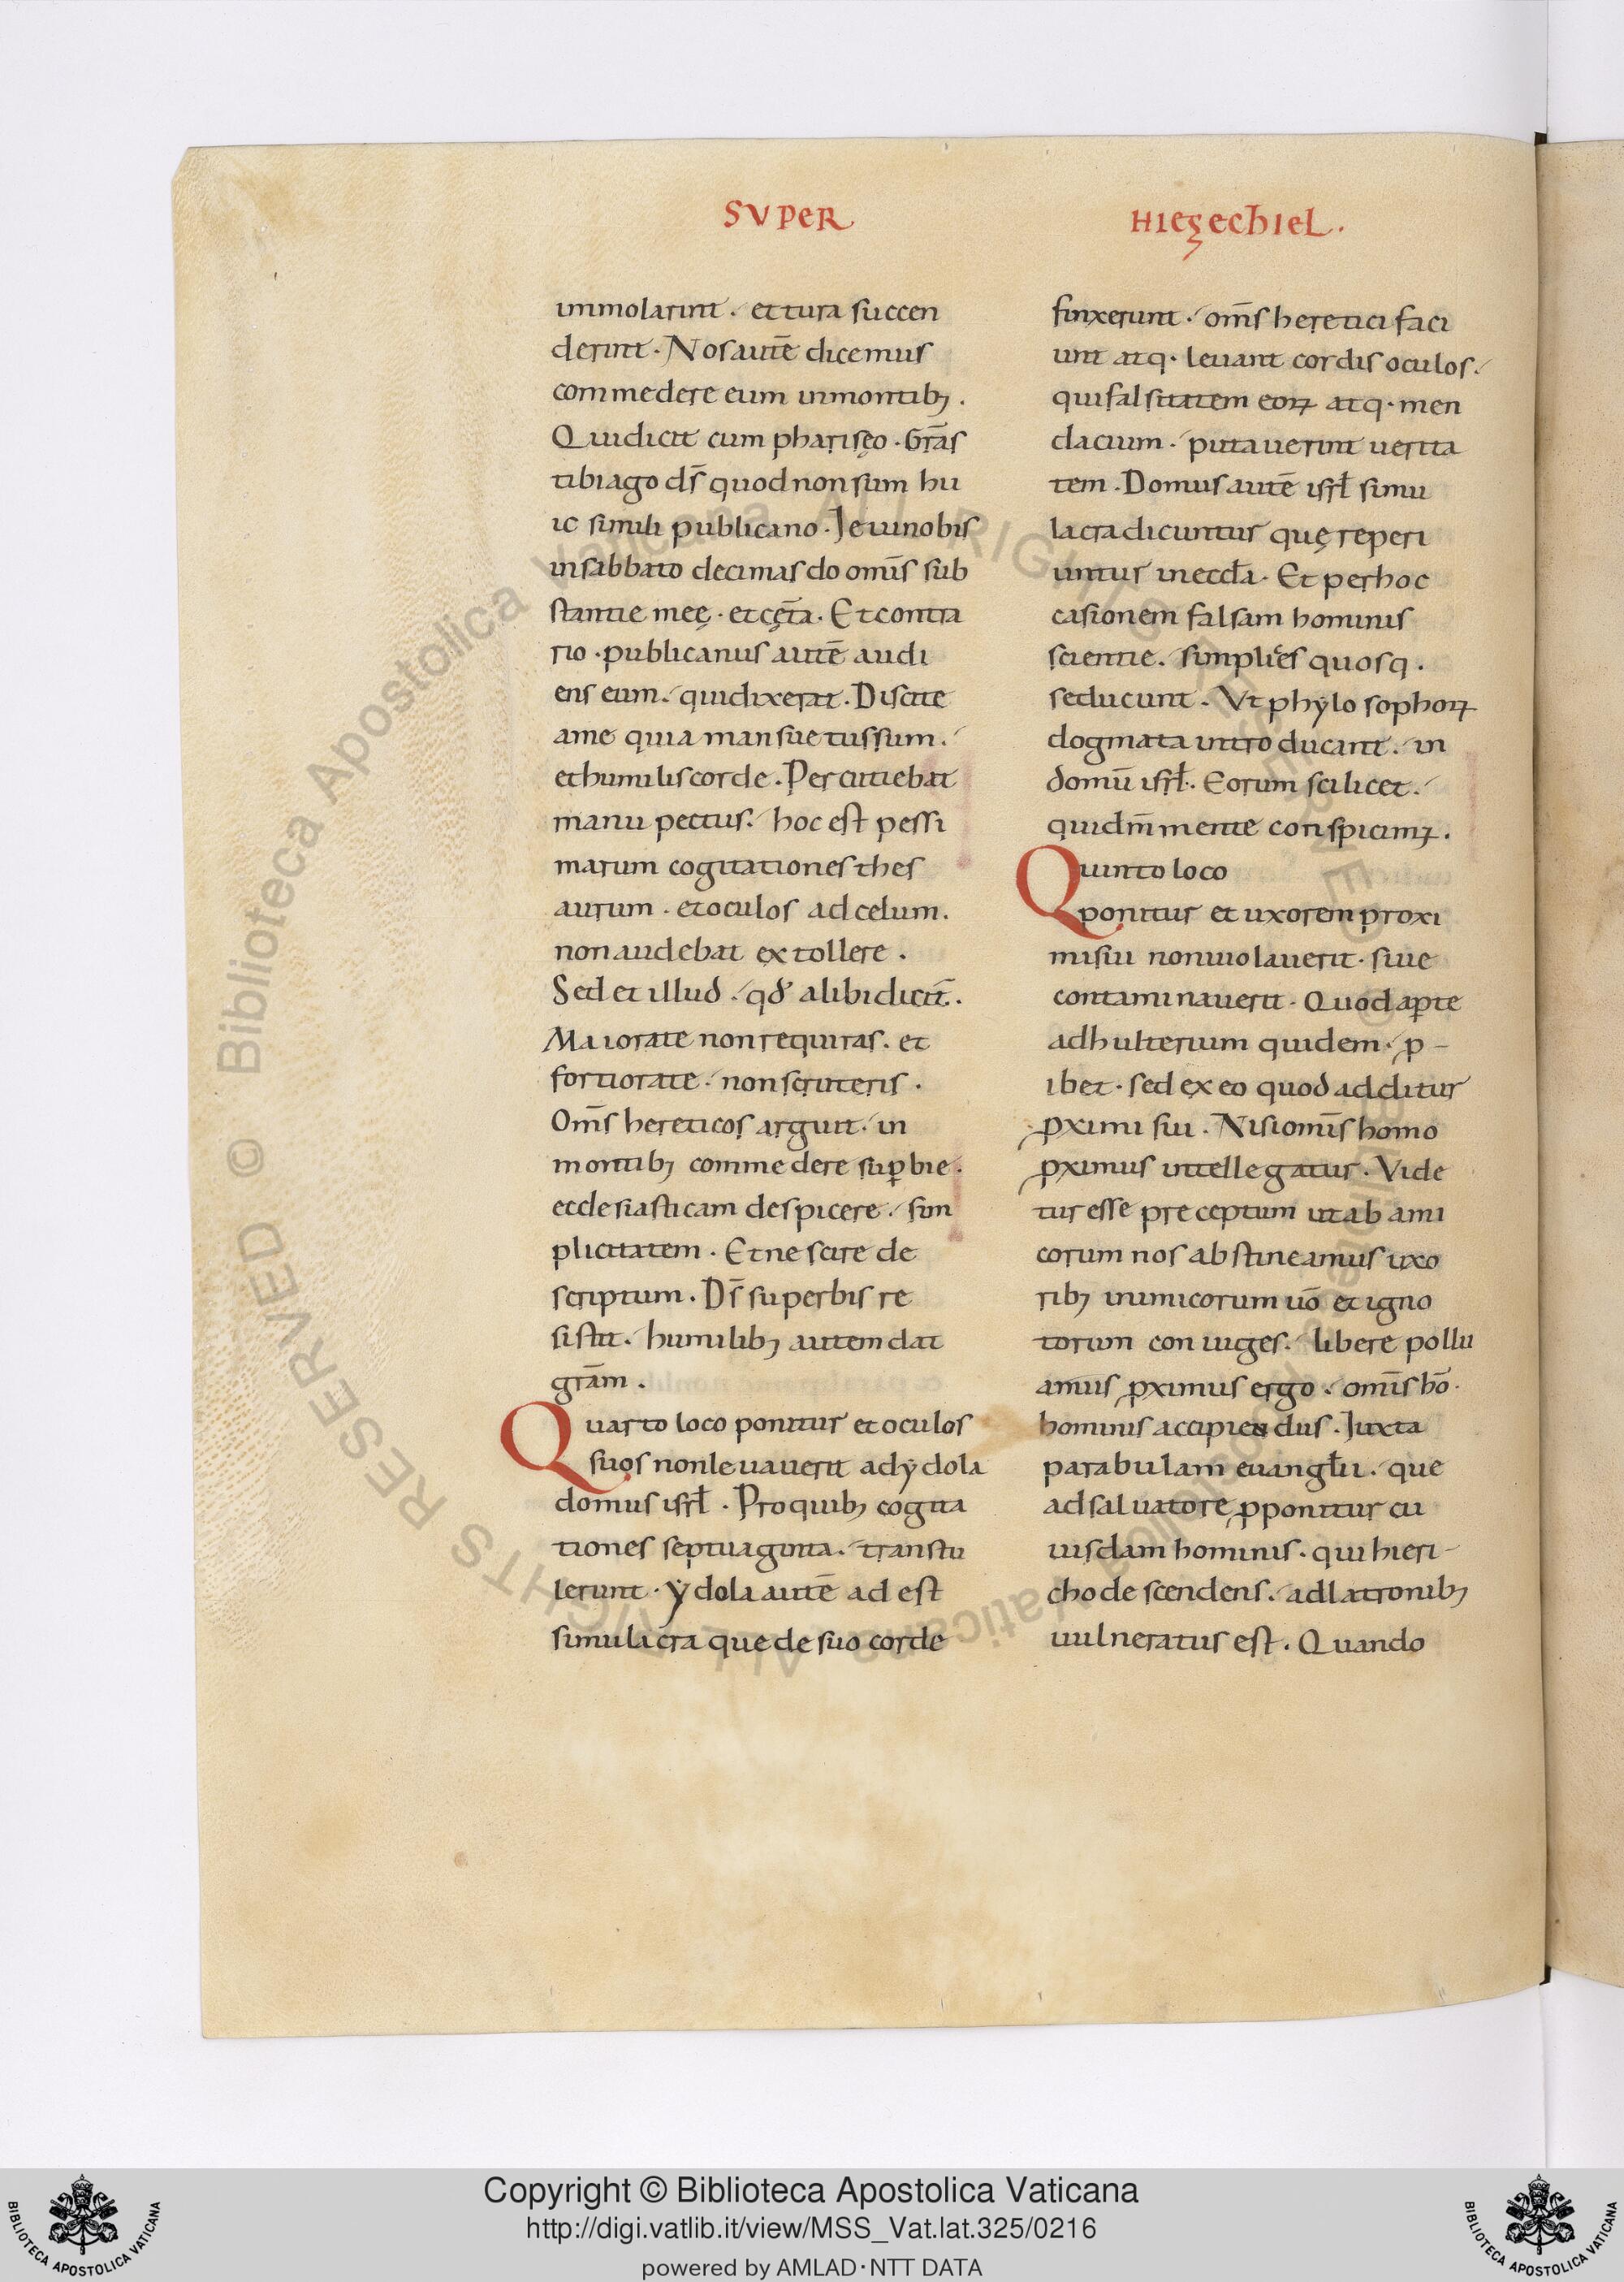 SVPER
HIEZECHIEL.
immolarint. et tura succen
derint. Nos autē dicemus
commedere eum in montibꝫ.
Qui dicit cum phariseo. Grās
tibi ago dꝭ quod non sum hu
ic simili publicano. Ieiuno bis
in sabbato decimas do omīs sub
stantie meę. et cęt̄a. Et contra
rio. publicanus autē audi
ens eum. qui dixerat. Discite
a me quia mansuetus sum.
et humilis corde. Percutiebat
manu pectus. hoc est pessi
marum cogitationes thes
aurum. et oculos ad celum.
non audebat extollere.
Sed et illud. qđ alibi dicit̄.
Maiora te non requiras. et
fortiora te. non scruteris.
Om̄s hereticos arguit. in
montibꝫ commedere suꝑbie.
ecclesiasticam despicere. sim
plicitatem. Et nescire de
scriptum. Ds̄ superbis re
sistit. humilibꝫ autem dat
grām.
Quarto loco ponitur et oculos
suos non levaverit ad ydola
domus isrł. Pro quibꝫ cogita
tiones septuaginta. transtu
lerunt. ydola autē ad est
simulacra que de suo corde
finxerunt. om̄s heretici faci
unt atq. levant cordis oculos.
qui falsitatem eoꝝ atq. men
dacium. putaverint verita
tem. Domus autē isrł simu
lacra dicuntur quę reperi
untur in eccła. Et per hoc
casionem falsam hominis
scientie. simplicēs quosq.
seducunt. Ut phylosophoꝝ
dogmata introducant. in
domū isrł. Eorum scilicet.
qui dm̄ mente conspiciunt.
Quinto loco
ponitur et uxorem proxi
mi sui non violaverit. sive
contaminaverit. Quod aperte
adhulterium quidem. ꝓ-
ibet. sed ex eo quod additur
ꝓximi sui. Nisi omīs homo
ꝓximus intellegatur. Vide
tur esse preceptum ut ab ami
corum nos abstineamus uxo
ribꝫ inimicorum uō et igno
torum coniuges. libere pollu
amus ꝓximus ergo. omīs hō.
hominis accipiendus. Iuxta
parabulam evangłii. que
ad salvatore ꝓponitur cu
iusdam hominis. qui hieri-
cho descendens. ad latronibꝫ
vulneratus est. Quando
Copyright © Biblioteca Apostolica Vaticana
http://digi.vatlib.it/view/MSS_Vat.lat.325/0216
powered by AMLAD·NTT DATA
BIBLIOTECA APOSTOLICA VATICANA
BIBLIOTECA APOSTOLICA VATICANA
© Biblioteca Apostolica Vaticana ALL RIGHTS RESERVED